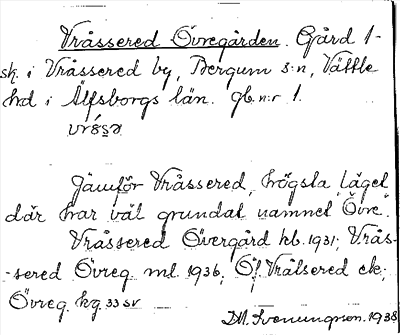 Vråssered Övregården. Gård 1-
sk. i Vråssered by, Bergum s:n, Vättle
hd i Älfsborgs län. gb. n:r 1.
Jämför Vråssered, högsta läget
där har väl grundat namnet "Övre".
Vråssered Övergård kb. 1931; Vrås-
-sered Övreg. ml. 1936, Öf. Vrålsered ek;
Övreg. hg. 33 sv
D.M. Svenungsson. 1938